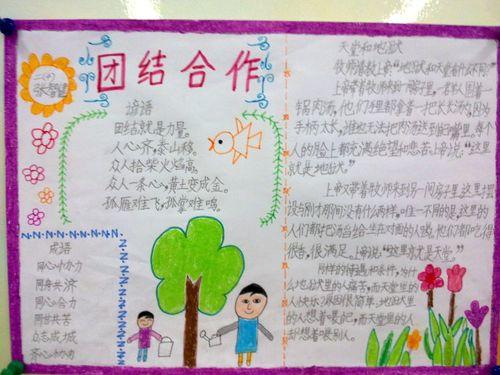 团结合作
二(十)
张智健
谚语
团结就是力量。
人心齐,泰山移。
众人拾柴火焰高。
众人一条心,黄土变成金。
孤雁难飞,孤掌难鸣。
成语
同心协力
同舟共济
同心合力
同甘共苦
众志成城
齐心协力
天堂和地狱
牧师请教上帝:"地狱和天堂有什么不同?"
上帝带着牧师来到一间房子里。一群人围着一
锅肉汤,他们手里都拿着一把长长的汤勺,因为
手柄太长,谁也无法把肉汤送到自己嘴里。每个
人的脸上都充满绝望和悲苦。上帝说:"这里
就是地狱。"
上帝又带着牧师来到另一间房子里。这里摆
设与刚才那间没有什么两样,唯一不同的是,这里的
人们都把汤舀给坐在对面的人喝。他们都吃得
很香,很满足。上帝说:"这里就是天堂。"
同样的待遇和条件,为什
么地狱里的人痛苦,而天堂里的
人快乐?原因很简单:地狱里
的人想着喂自己,而天堂里的人
却想着喂别人。